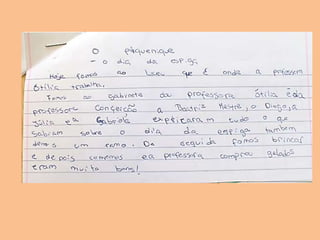 O piquenique
- o dia da espiga
Hoje fomos ao Liceu que é onde a professora
Otília trabalha.
Fomos ao gabinete da professora Otília e da
professora Conceição a Beatriz Mestre, o Diogo, a
Júlia e a Gabriela explicaram tudo o que
sabiam sobre o dia da espiga também
demos um ramo. De seguida fomos brincar
e depois comemos e a professora comprou gelados
eram muito bons!